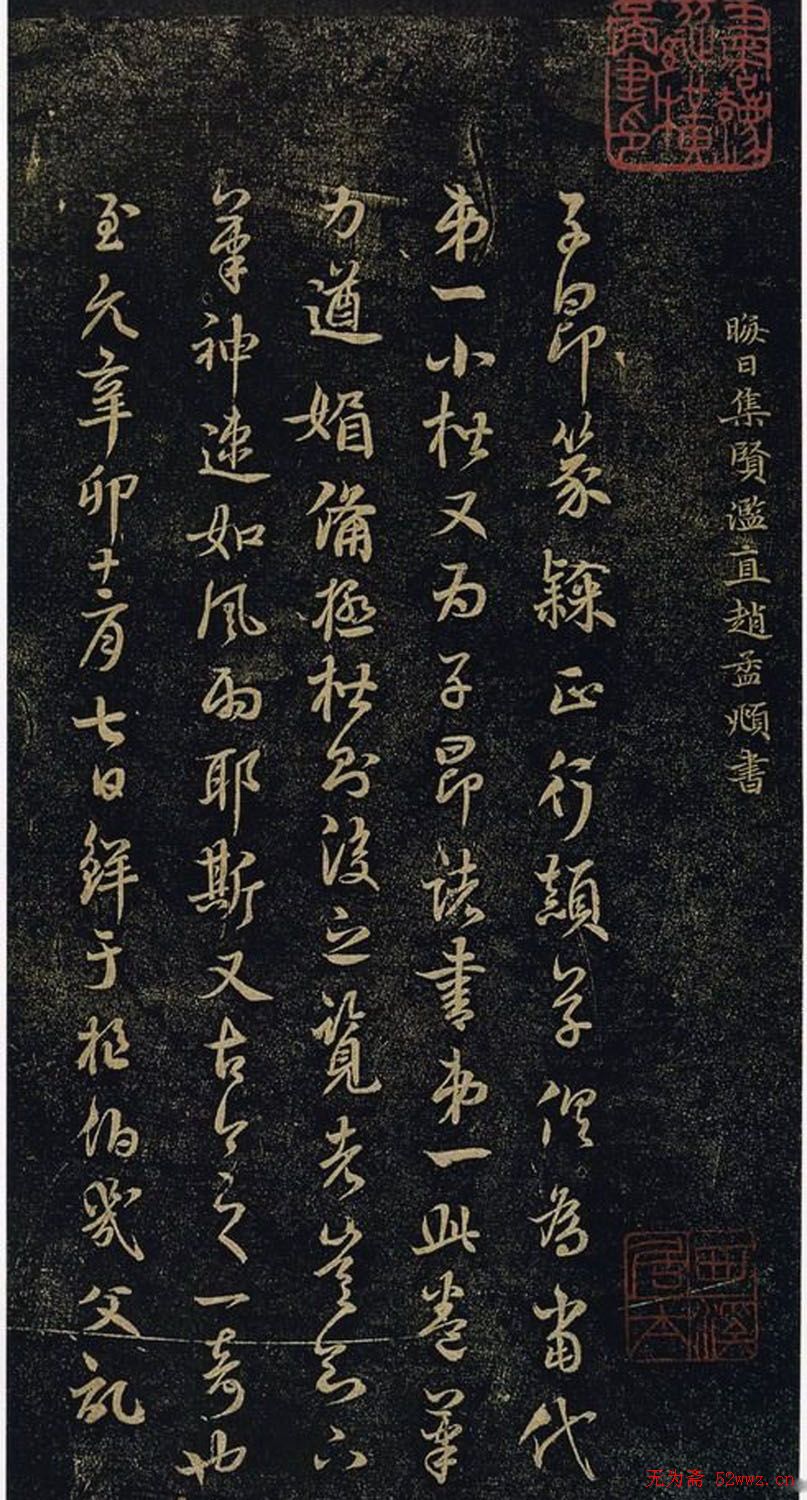 晦日集賢濫直趙孟頫書
子昂篆隸正行顛草俱為當代
第一小楷又为子昂諸書第一此卷筆
力遒媚備極楷則後之覽者豈知下
筆神速如風雨耶斯又古今之一奇也
至元辛卯十二月七日鮮于樞伯幾父記
无为斋 52wwz.cn